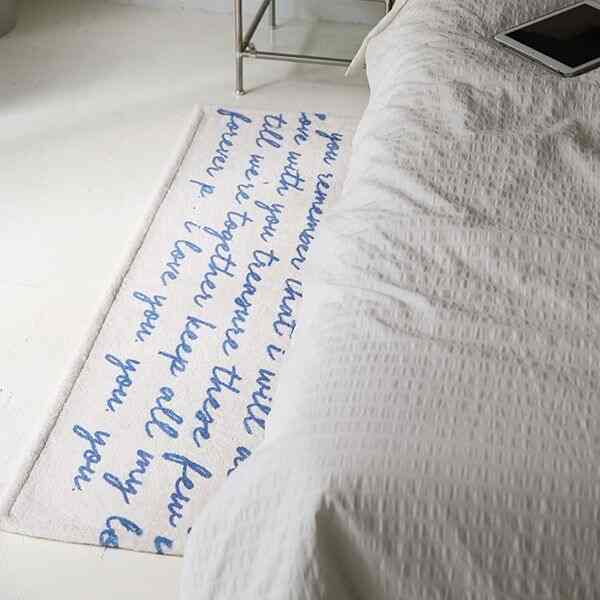 you remember that i will
love with you treasure these few
till we're together keep all my lo
forever p. i love you. you. you.